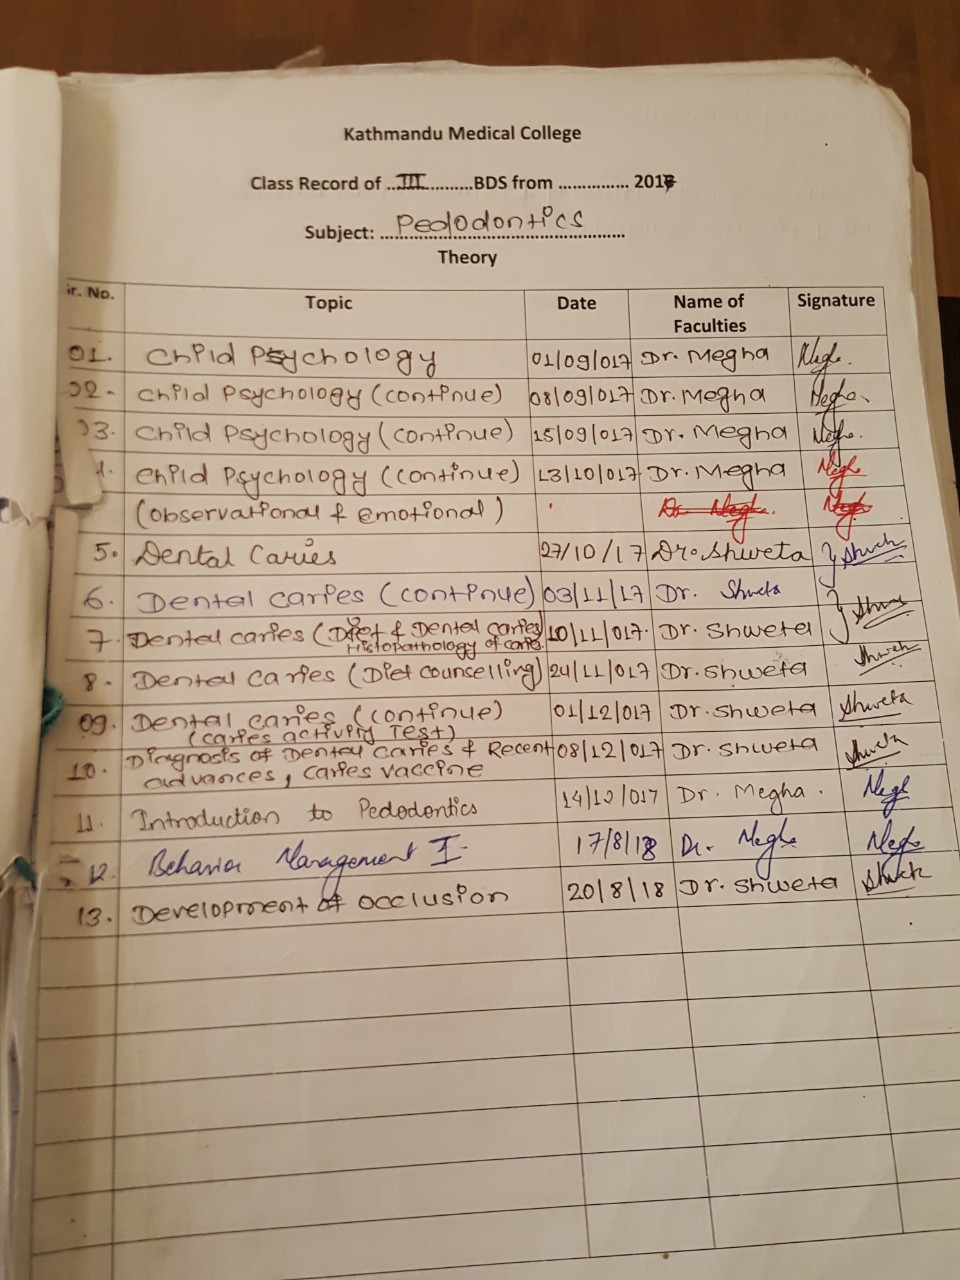 Kathmandu Medical College
Class Record of ..III..........BDS from ............... 2017
Subject: ....Pedodontics....
Theory
ir. No. Topic Date Name of Faculties Signature
01. Child Psychology 01/09/017 Dr. Megha Megha.
02. Child Psychology (continue) 08/09/017 Dr. Megha Megha.
03. Child Psychology (continue) 15/09/017 Dr. Megha Megha.
4. Child Psychology (continue) 13/10/017 Dr. Megha Megha
(observational & emotional) Dr. Megha. Megha
5. Dental Caries 27/10/17 Dr. Shweta Shweta
6. Dental caries (continue) 03/11/17 Dr. Shweta Shweta
7. Dental caries (Diet & Dental caries 10/11/017. Dr. Shweta
Histopathology of caries.
8. Dental caries (Diet counselling) 24/11/017 Dr. Shweta Shweta
09. Dental caries (continue) 01/12/017 Dr. Shweta Shweta
(caries activity Test)
10. Diagnosis of Dental caries & Recent 08/12/017 Dr. Shweta Shweta
advances, caries vaccine
11. Introduction to Pedodontics 14/12/017 Dr. Megha. Megha
12. Behavior Management I- 17/8/18 Dr. Megha Megha
13. Development of occlusion 20/8/18 Dr. Shweta Shweta